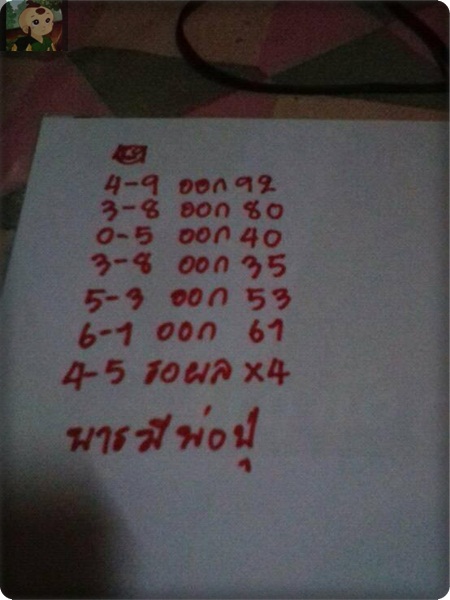 4-9 ออก 92
3-8 ออก 80
0-5 ออก 40
3-8 ออก 35
5-3 ออก 53
6-1 ออก 61
4-5 รอผล x4
บารมีพ่อปู่